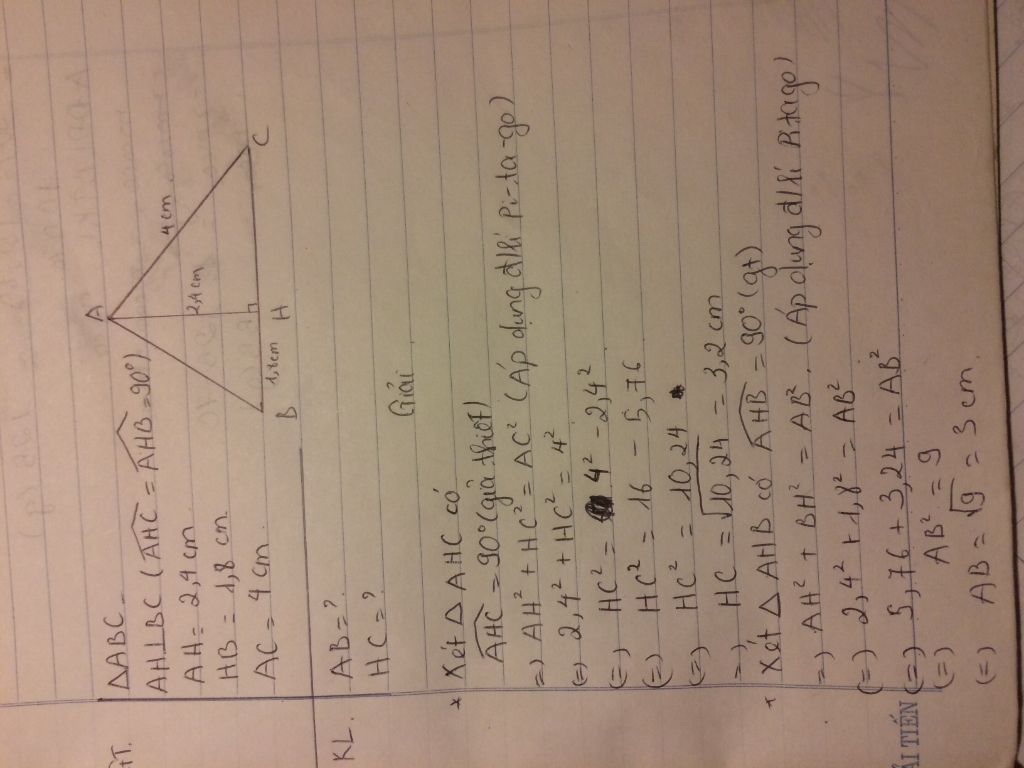 GT.
ΔABC
AH⊥BC (AHC = AHB = 90°)
AH = 2,4 cm
HB = 1,8 cm
AC = 4 cm.
A
4 cm
2,4 cm
1,8 cm
B
H
C
KL.
AB = ?
HC = ?
Giải
* Xét Δ AHC có
AHC = 90° (giả thiết)
=) AH² + HC² = AC² (Áp dụng đlkí Pi-ta-go)
(=) 2,4² + HC² = 4²
(=) HC² = 4² - 2,4²
(=) HC² = 16 - 5,76
(=) HC² = 10,24
=) HC = √10,24 = 3,2 cm
* Xét Δ AHB có AHB = 90° (gt)
=) AH² + BH² = AB². (Áp dụng đlkí Pitago)
(=) 2,4² + 1,8² = AB²
(=) 5,76 + 3,24 = AB²
(=) AB² = 9
(=) AB = √9 = 3 cm.
ẢI TIẾN